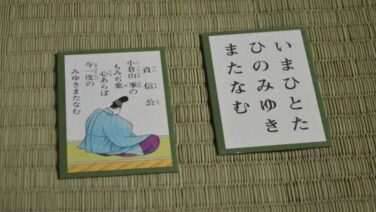 貞信公
小倉山峯の
もみぢ葉
心あらば
今一度の
みゆきまたなむ
いまひとた
ひのみゆき
またなむ